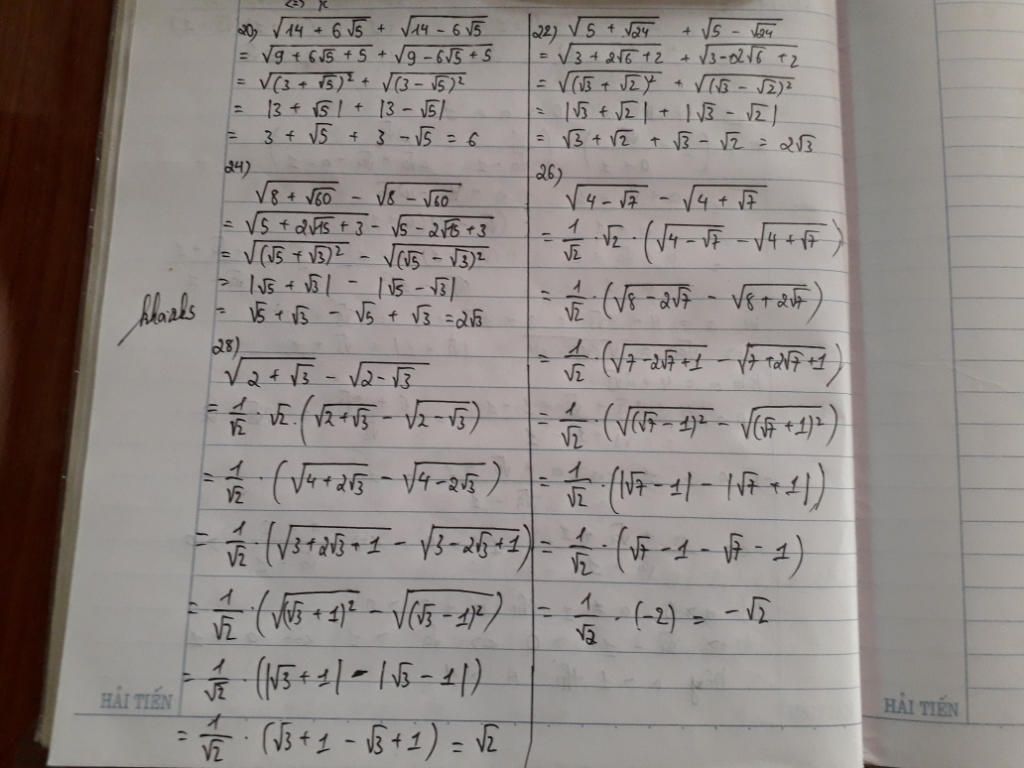 20) √(14 + 6√5) + √(14 - 6√5)
= √(9 + 6√5 + 5) + √(9 - 6√5 + 5)
= √((3 + √5)²) + √((3 - √5)²)
= |3 + √5| + |3 - √5|
= 3 + √5 + 3 - √5 = 6
24)
√(8 + √60) - √(8 - √60)
= √(5 + 2√15 + 3) - √(5 - 2√15 + 3)
= √((√5 + √3)²) - √((√5 - √3)²)
= |√5 + √3| - |√5 - √3|
= √5 + √3 - √5 + √3 = 2√3
28)
√(2 + √3) - √(2 - √3)
= 1/√2 · √2 · (√(2 + √3) - √(2 - √3))
= 1/√2 · (√(4 + 2√3) - √(4 - 2√3))
= 1/√2 · (√(3 + 2√3 + 1) - √(3 - 2√3 + 1))
= 1/√2 · (√((√3 + 1)²) - √((√3 - 1)²))
= 1/√2 · (|√3 + 1| - |√3 - 1|)
= 1/√2 · (√3 + 1 - √3 + 1) = √2
22) √(5 + √24) + √(5 - √24)
= √(3 + 2√6 + 2) + √(3 - 2√6 + 2)
= √((√3 + √2)²) + √((√3 - √2)²)
= |√3 + √2| + |√3 - √2|
= √3 + √2 + √3 - √2 = 2√3
26)
√(4 - √7) - √(4 + √7)
= 1/√2 · √2 · (√(4 - √7) - √(4 + √7))
= 1/√2 · (√(8 - 2√7) - √(8 + 2√7))
= 1/√2 · (√(7 - 2√7 + 1) - √(7 + 2√7 + 1))
= 1/√2 · (√((√7 - 1)²) - √((√7 + 1)²))
= 1/√2 · (|√7 - 1| - |√7 + 1|)
= 1/√2 · (√7 - 1 - √7 - 1)
= 1/√2 · (-2) = -√2
HẢI TIẾN
HẢI TIẾN